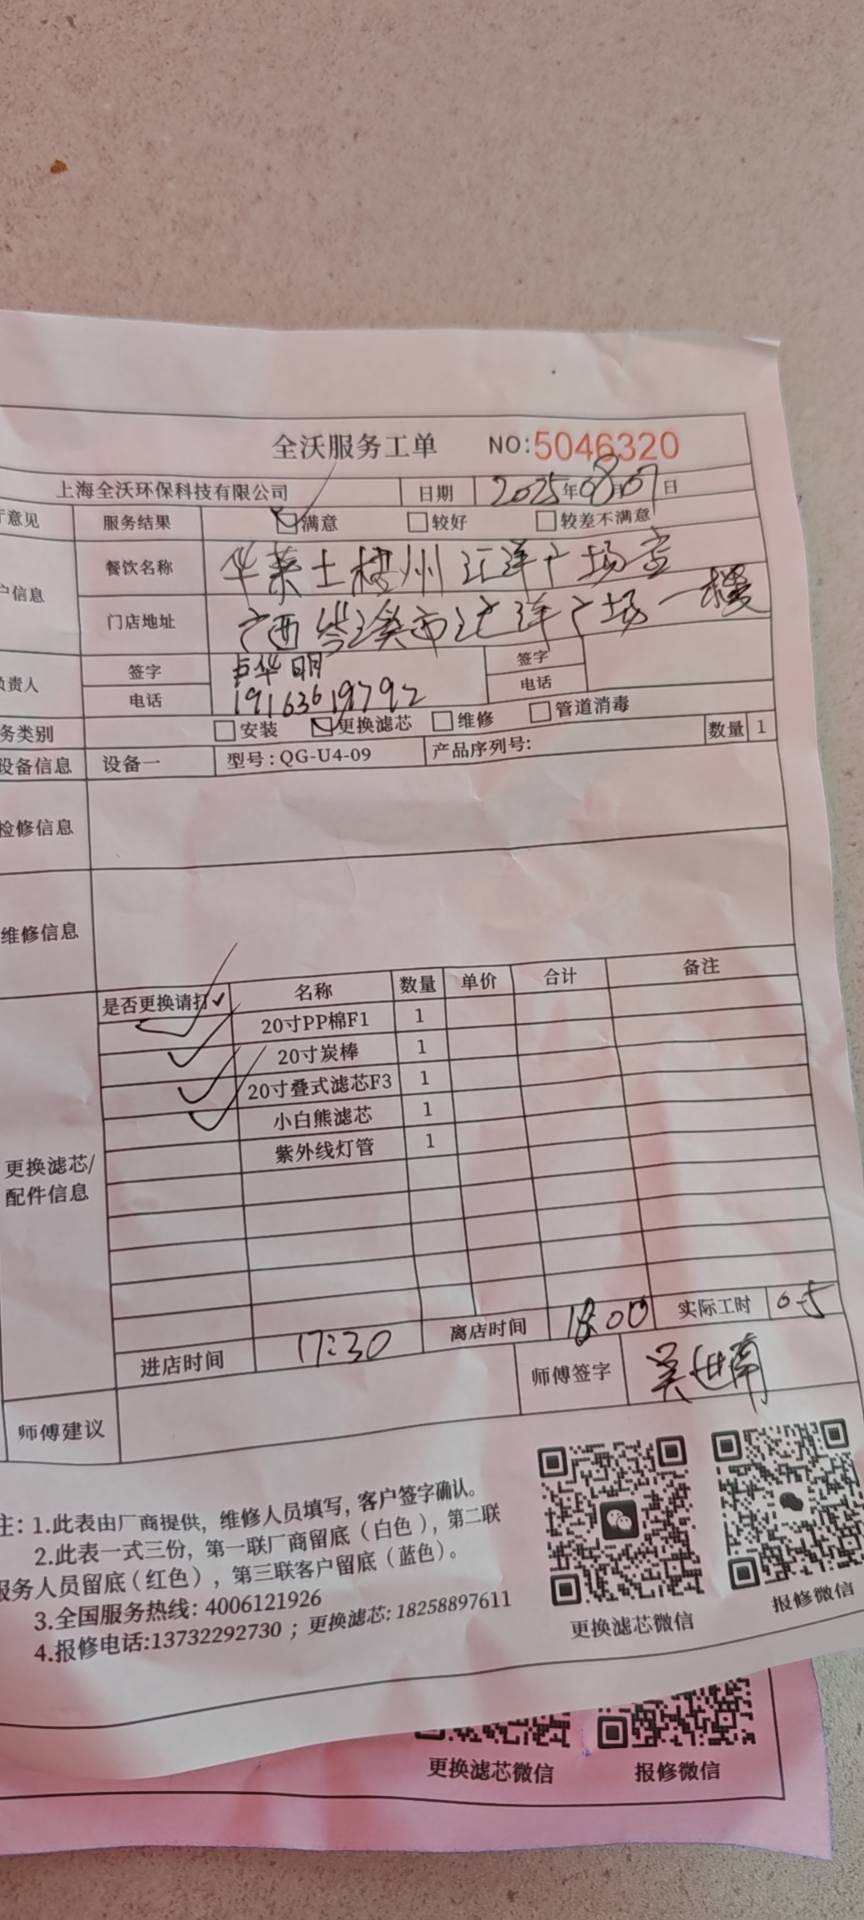 全沃服务工单 NO:5046320
上海全沃环保科技有限公司 日期 2025年08月07日
意见 服务结果 满意 较好 较差不满意
户信息 餐饮名称 华莱士梧州汇洋广场店
门店地址 广西岑溪市汇洋广场一楼
负责人 签字 卢华明 签字
电话 19163619792 电话
务类别 安装 更换滤芯 维修 管道消毒
设备信息 设备一 型号:QG-U4-09 产品序列号: 数量 1
检修信息
维修信息
更换滤芯/
配件信息
是否更换请打✓ 名称 数量 单价 合计 备注
✓ 20寸PP棉F1 1
✓ 20寸炭棒 1
✓ 20寸叠式滤芯F3 1
✓ 小白熊滤芯 1
紫外线灯管 1
进店时间 17:30 离店时间 18:00 实际工时 0.5
师傅建议 师傅签字 吴世南
注: 1.此表由厂商提供, 维修人员填写, 客户签字确认。
2.此表一式三份, 第一联厂商留底(白色), 第二联
服务人员留底(红色), 第三联客户留底(蓝色)。
3.全国服务热线: 4006121926
4.报修电话:13732292730 ; 更换滤芯: 18258897611
更换滤芯微信 报修微信
更换滤芯微信 报修微信